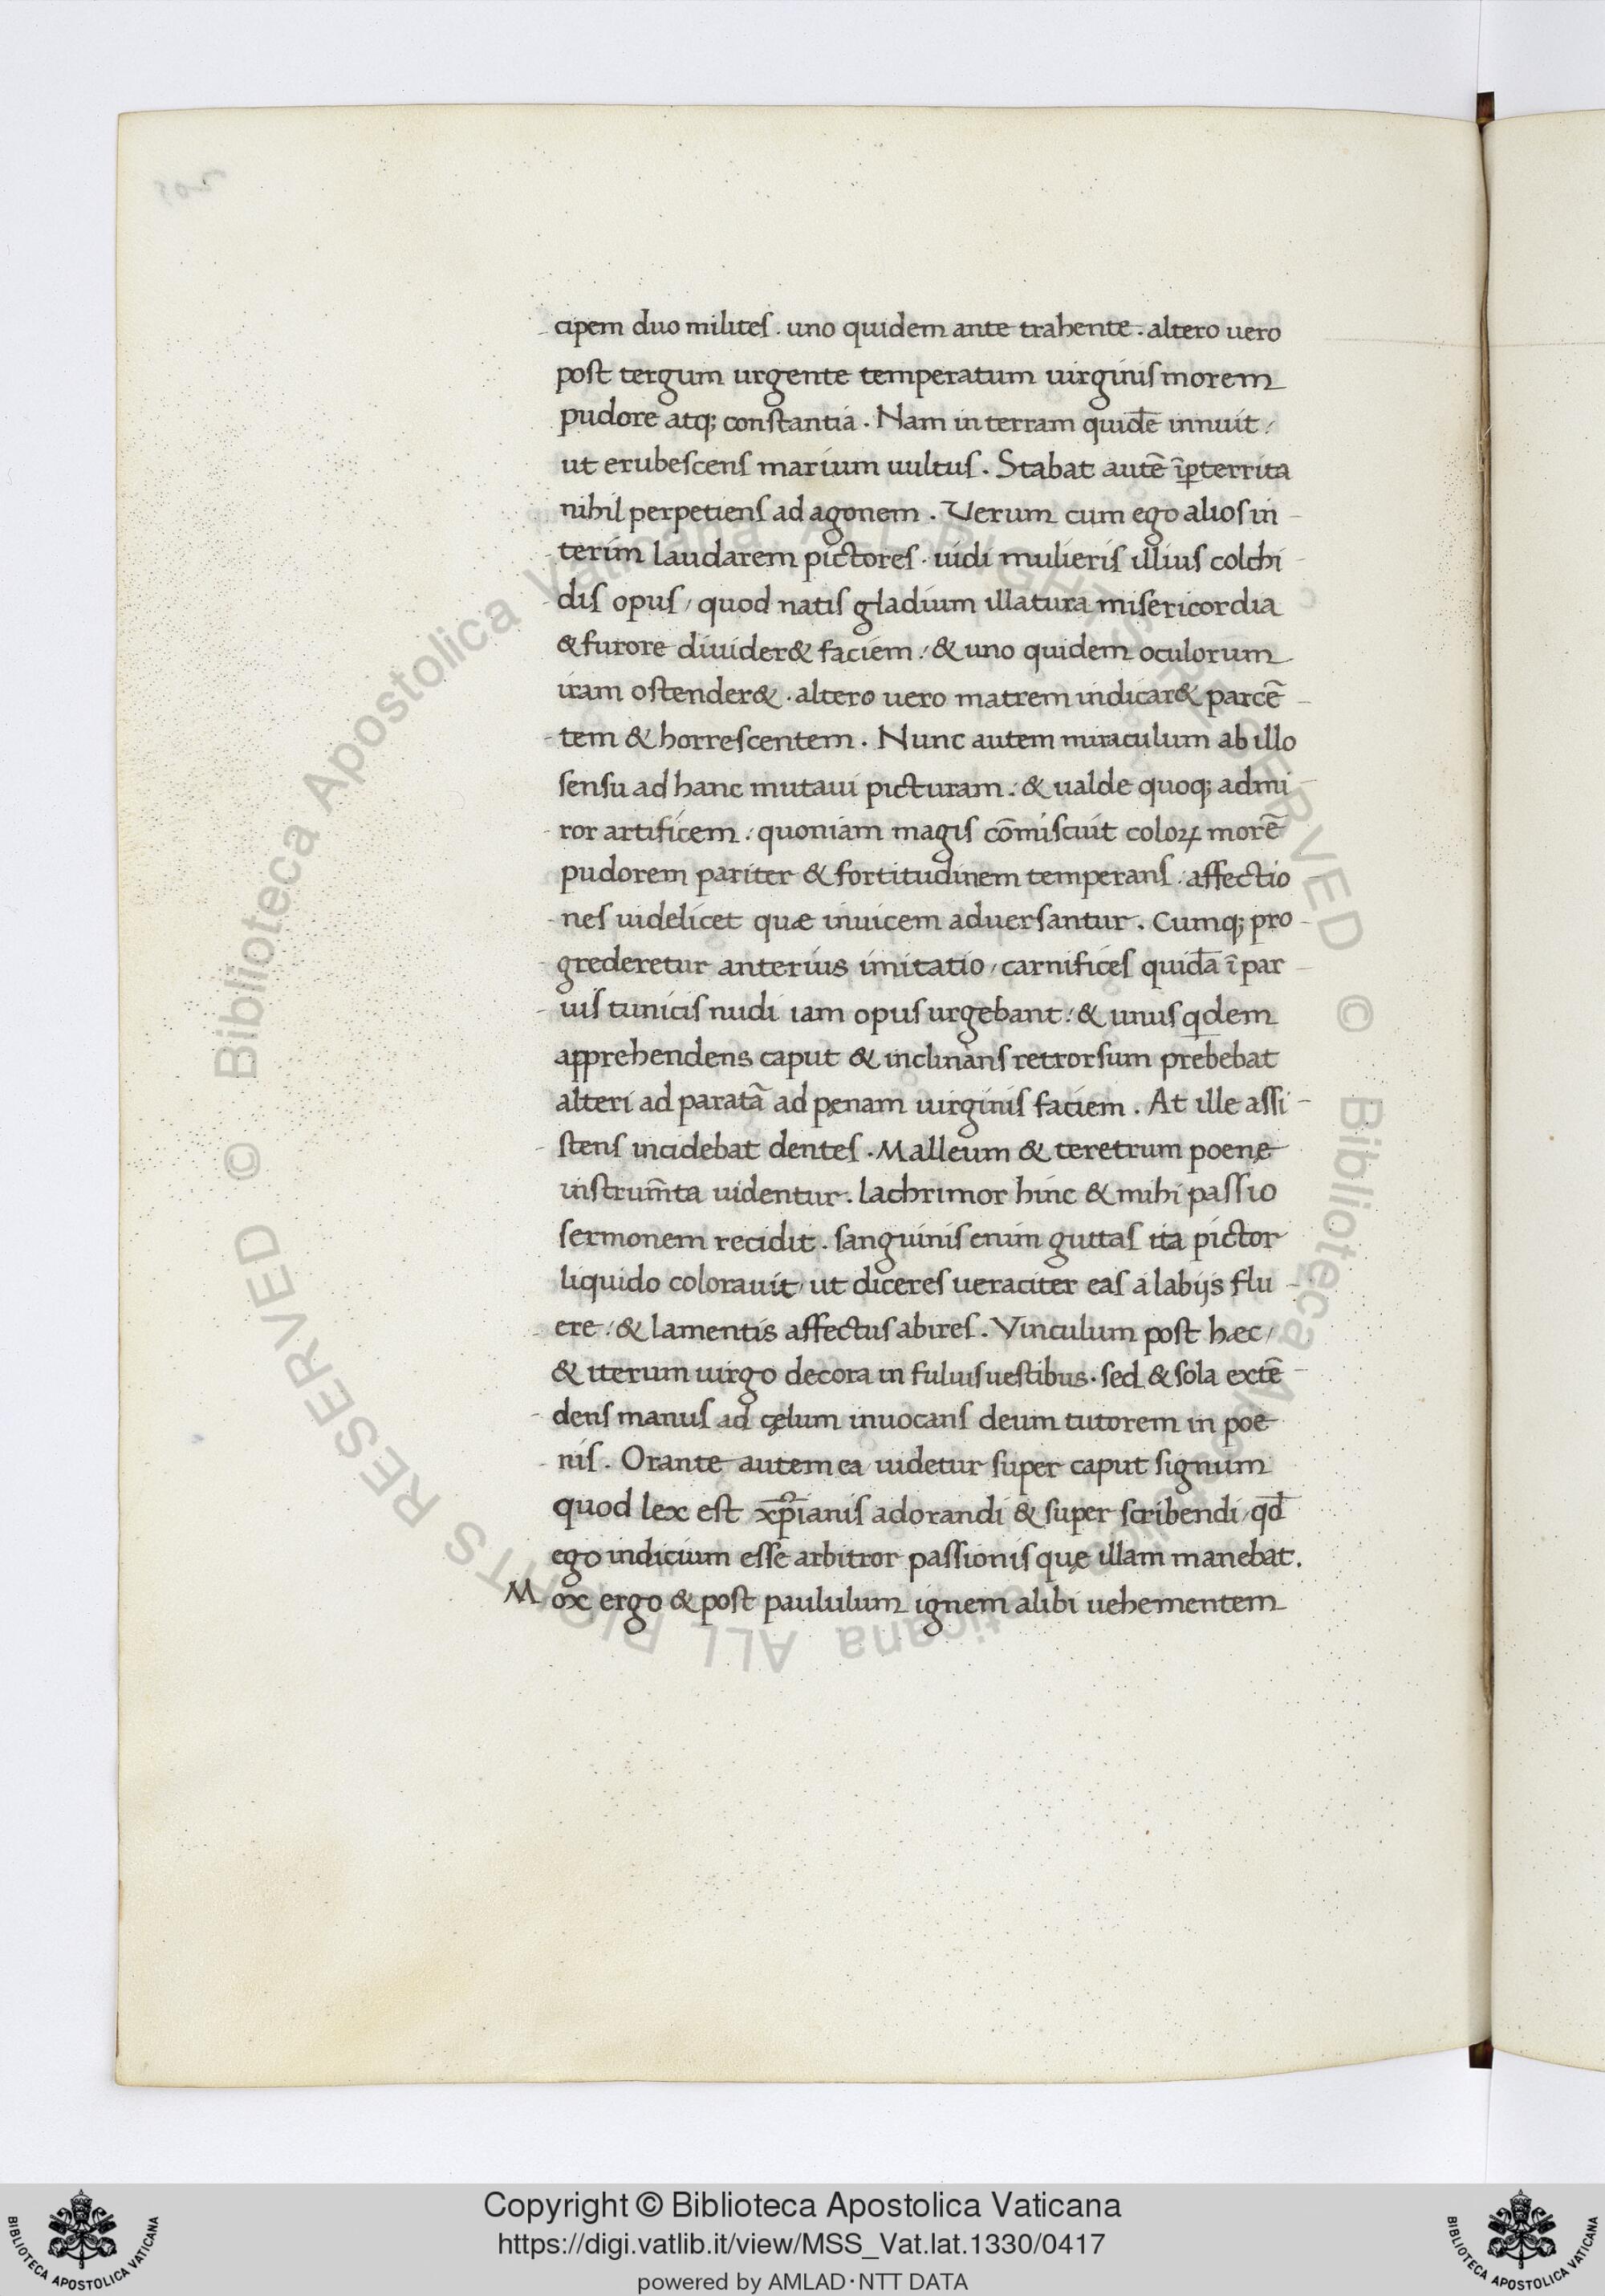 cipem duo milites. uno quidem ante trahente. altero uero
post tergum urgente temperatum uirginis morem
pudore atq; constantia. Nam in terram quidē innuit/
ut erubescens marium uultus. Stabat autē īꝑterrita
nihil perpetiens ad agonem. Verum cum ego alios in-
terim laudarem pictores. uidi mulieris illius colchi-
dis opus/ quod natis gladium illatura misericordia
& furore diuider& faciem:/ & uno quidem oculorum
iram ostender&. altero uero matrem indicar& parcē-
tem & horrescentem. Nunc autem miraculum ab illo
sensu ad hanc mutaui picturam:/ & ualde quoq; admi-
ror artificem:/ quoniam magis cōmiscuit coloꝝ morē
pudorem pariter & fortitudinem temperans. affectio-
nes uidelicet quæ inuicem aduersantur. Cumq; pro-
grederetur anterius imitatio/ carnifices quidā ī par-
uis tunicis nudi iam opus urgebant:/ & unus qdem
apprehendens caput & inclinans retrorsum prebebat
alteri ad paratā ad pęnam uirginis faciem. At ille assi-
stens incidebat dentes. Malleum & teretrum poenę
instrum̄ta uidentur. lachrimor hinc & mihi passio
sermonem recidit. sanguinis enim guttas ita pictor
liquido colorauit/ ut diceres ueraciter eas a labijs flu-
ere:/ & lamentis affectus abires. Vinculum post hæc/
& iterum uirgo decora in fuluis uestibus. sed & sola extē-
dens manus ad cęlum inuocans deum tutorem in poe-
nis. Orante autem ea uidetur super caput signum
quod lex est xp̄ianis adorandi & super scribendi/ qd̄
ego indicium esse arbitror passionis quę illam manebat.
Mox ergo & post paululum ignem alibi uehementem
© Biblioteca Apostolica Vaticana ALL RIGHTS RESERVED © Biblioteca Apostolica Vaticana ALL RIGHTS RESERVED
Copyright © Biblioteca Apostolica Vaticana
https://digi.vatlib.it/view/MSS_Vat.lat.1330/0417
powered by AMLAD·NTT DATA
BIBLIOTECA APOSTOLICA VATICANA
BIBLIOTECA APOSTOLICA VATICANA